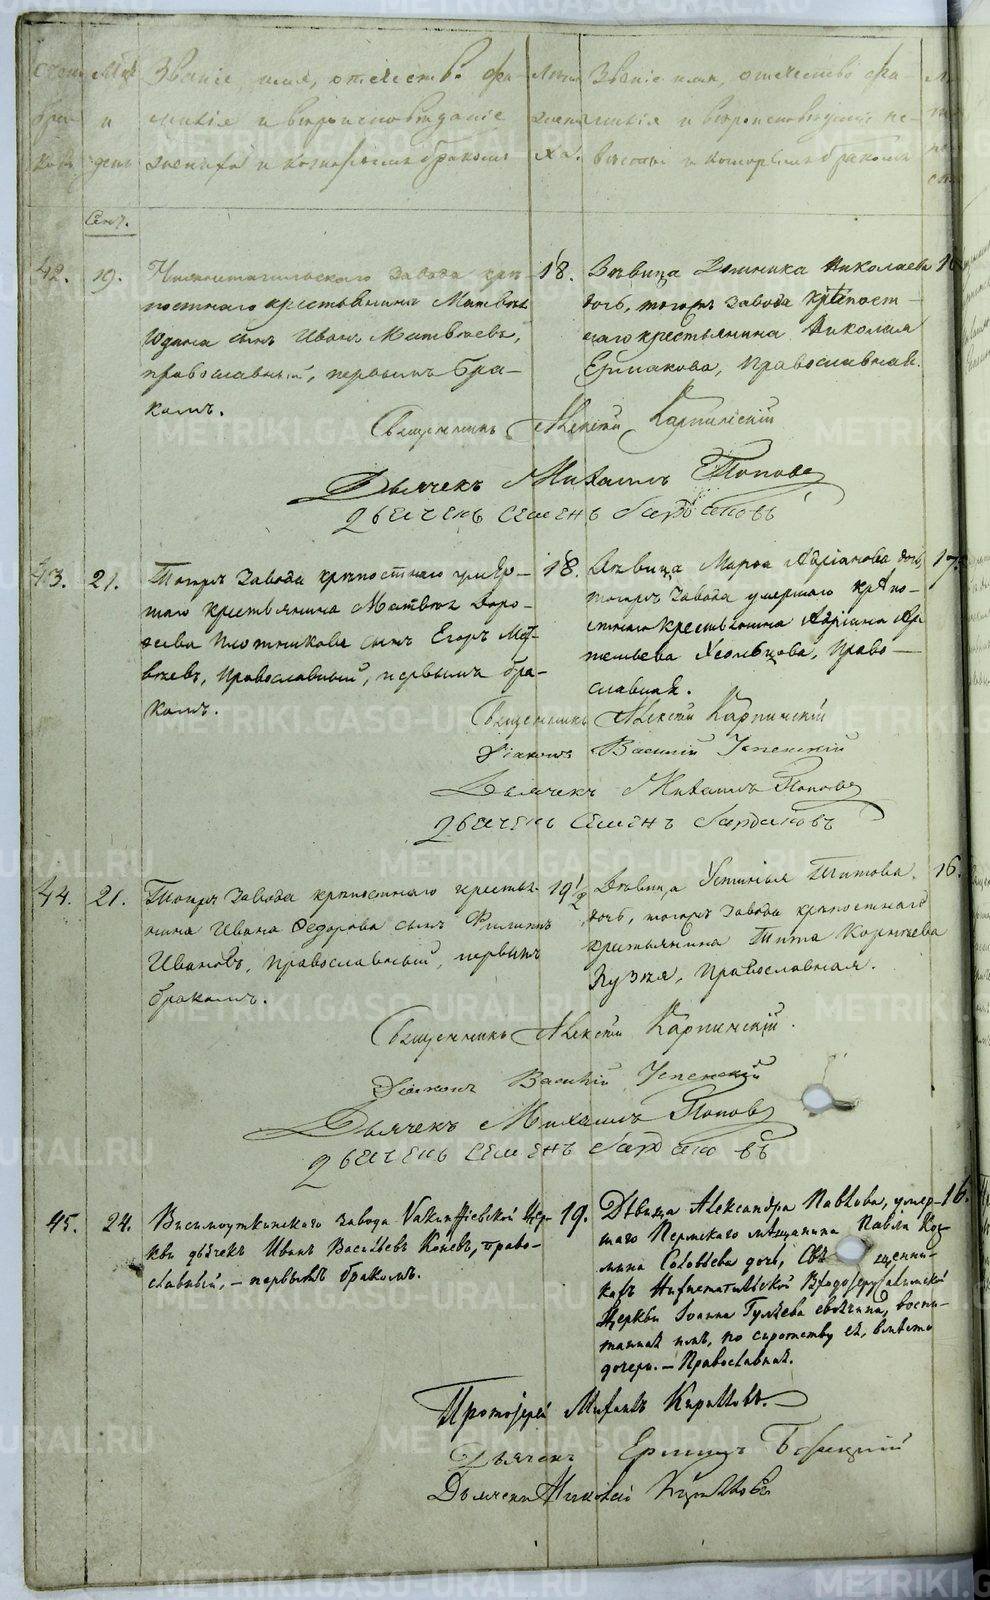 Звание, имя, отчество, фа-
милия и вероисповедание
жениха и которымъ бракомъ
Звание имя, отчество фа-
милия и вероисповедание не-
весты и которымъ бракомъ
Сент.
42. 19. Нижнетагильскаго завода крѣ-
постнаго крестьянина Матвѣя
Юдина сынъ Иванъ Матвѣевъ,
православный, первымъ бра-
комъ.
18.
Дѣвица Николаева
дочь, тогожъ завода крѣпост-
наго крестьянина Николая
Ермакова, Православная.
Священникъ Алексѣй Карпинскій
Дьячекъ Михаилъ Поповъ
Семенъ
43. 21. Тогожъ Завода крѣпостнаго умер-
шаго крестьянина Матвѣя Доро-
феева Плотникова сынъ Егоръ Мат-
вѣевъ, Православный, первымъ бра-
комъ.
18.
Дѣвица Марѳа Адріанова дочь,
тогожъ завода умершаго крѣпо-
стнаго крестьянина Адріана Ар-
темьева Усольцова, Право-
славная.
17.
Священникъ Алексѣй Карпинскій
Діаконъ Василій Успенскій
Дьячекъ Михаилъ Поповъ
Семенъ
44. 21. Тогожъ Завода крѣпостнаго кресть-
янина Ивана Федорова сынъ Филиппъ
Ивановъ, православный, первымъ
бракомъ.
19 1/2
Дѣвица Устинья Титова
дочь, тогожъ завода крѣпостнаго
крестьянина Тита Корнѣева
Православная.
16.
Священникъ Алексѣй Карпинскій.
Діаконъ Василій Успенскій
Дьячекъ Михаилъ Поповъ
Семенъ
45. 24. Висимоуткинскаго завода Іакинфіевской Цер-
кви дьячекъ Иванъ Васильевъ Коневъ, право-
славный, – первымъ бракомъ.
19.
Дѣвица Александра Павлова, умер-
шаго Пермскаго мѣщанина Павла Коз-
мина Соловьева дочь,
Нижнетагильской Входоіерусалимской
Церкви Іоанна воспи-
танная имъ, по сиротству ея, вмѣсто
дочери. – Православная.
16.
Протоіерей Михаилъ Кирилловъ.
Дьячекъ
Дьячекъ
METRIKI.GASO-URAL.RU